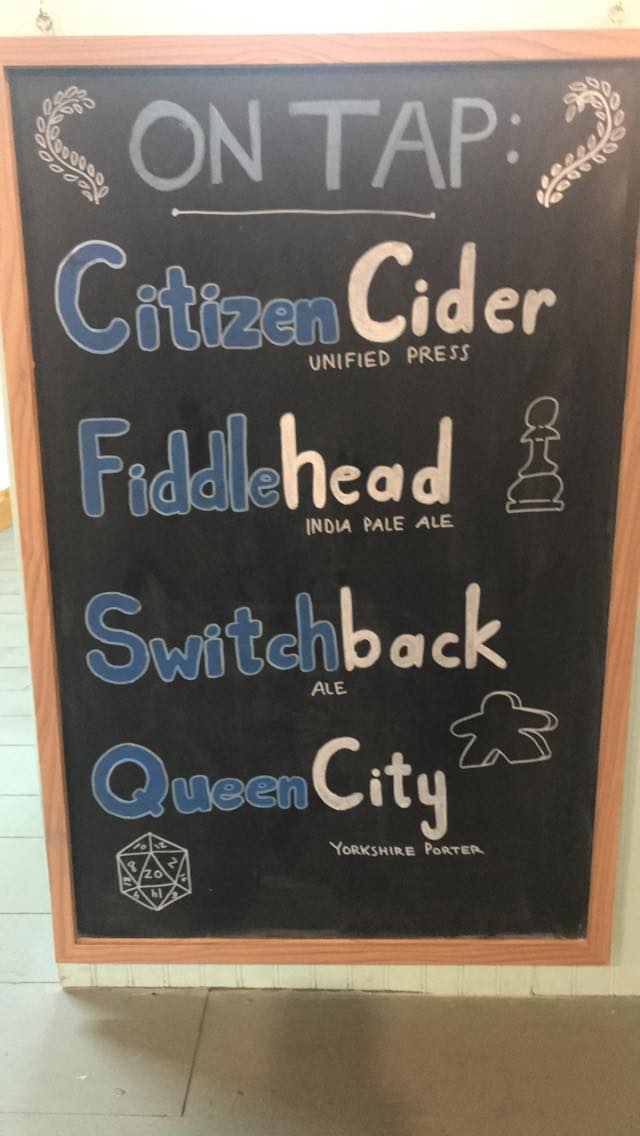 ON TAP:
Citizen Cider
UNIFIED PRESS
Fiddlehead
INDIA PALE ALE
Switchback
ALE
Queen City
YORKSHIRE PORTER
10 12
8 20 2
14